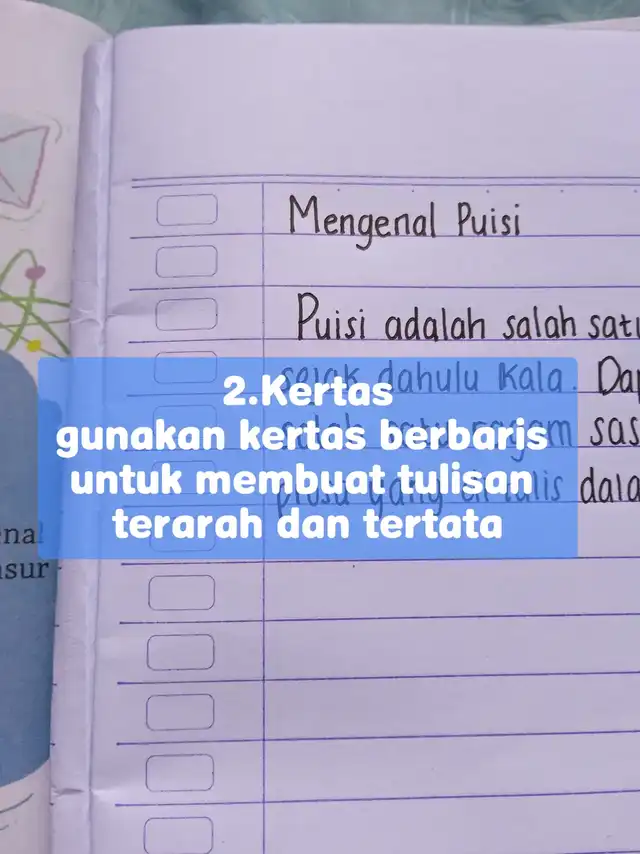 Mengenal Puisi
Puisi adalah salah satu
sejak dahulu kala. Dap
salah satu ragam sas
prosa yang di tulis dala
2.Kertas
gunakan kertas berbaris
untuk membuat tulisan
terarah dan tertata
nal
sur